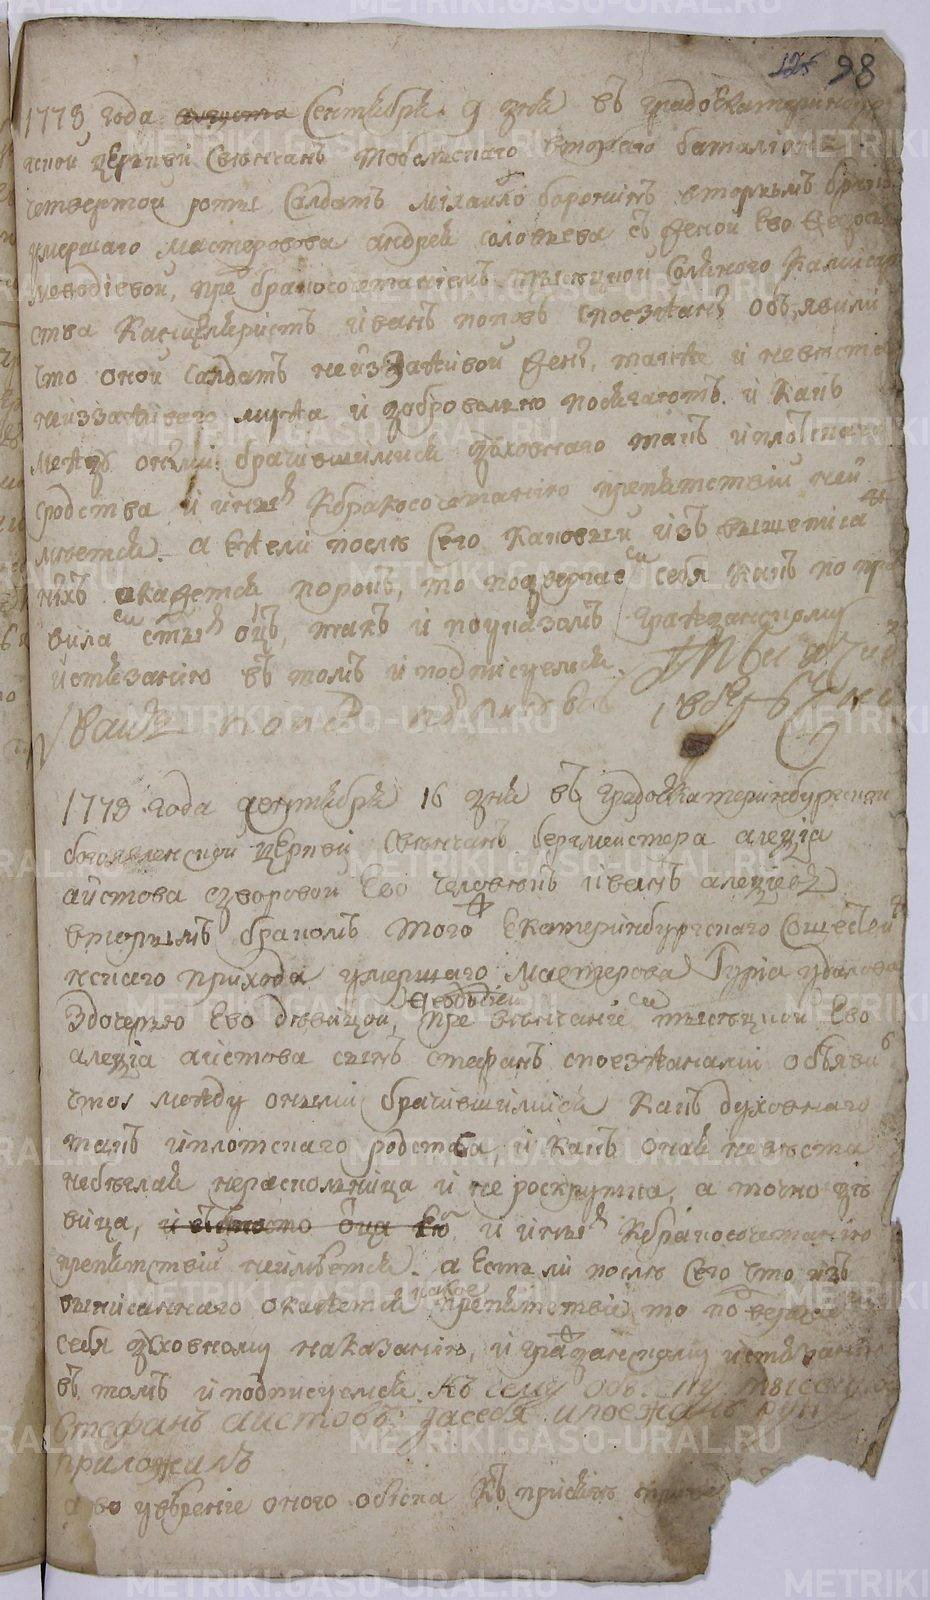 125 98
1773 года августа Сентября 9 дня въ градоекатеринбур
ской церкви Свенчанъ Тобольскаго втораго баталиона
четвертой роты Салдатъ михаило боронинъ вторымъ браком
умершаго мастерова андрея соловьева съ женой Ево Федось
мефодиевой, пре бракосочетаниемъ тысяцкой Соляного Камисар
ства Канцеляристъ иванъ поповъ споезжаны объявили
что оной Салдатъ неизживой жены, также и невеста
неизживаго мужа и доброволно посягаютъ. и какъ
межъ оными брачившимися духовнаго такъ и плотскаго
сродства и иныхъ кбракосочетанию препятствий неи
меется. а ежели после сего каковыи изъ вышеписа
нихъ окажется порокъ, то подвергаемся себя какъ по пра
вила стыхъ оцъ, такъ и поуказомъ гражданскому
истязанию въ томъ и подписуемся.
Иванъ поповъ подписовался
1773 года сентября 16 дня въ градоекатеринбургской
богоявленской церкви Свенчанъ бергмейстера алексиа
аистова сдворовой Ево человекъ иванъ алексеевъ
вторымъ бракомъ того екатеринбургскаго Сошестви
нскаго прихода умершаго мастерова Гуриа удалова
Федосиеи
Здочерью Ево девицои, пре венчание тысяцкой Ево
алексиа аистова сынъ стефанъ споезжанами объяви
что между оными брачившимися какъ духовнаго
такъ иплотскаго родства, и какъ оная невеста
небеглая нерасколница и не роскрутка, а точно де
вица, и иныхъ кбракосочетанию
препятствий неимеется. а естьли после сего что изъ
вышписаннаго окажется какое препятствии то подвергаем
себя духовному наказанию, и гражданскому истязанию
въ томъ и подписуемся Къ сему обыску тысецкой
Стефанъ аистовъ засебя ипоежанъ руку
приложилъ
а во уверение оного обыска